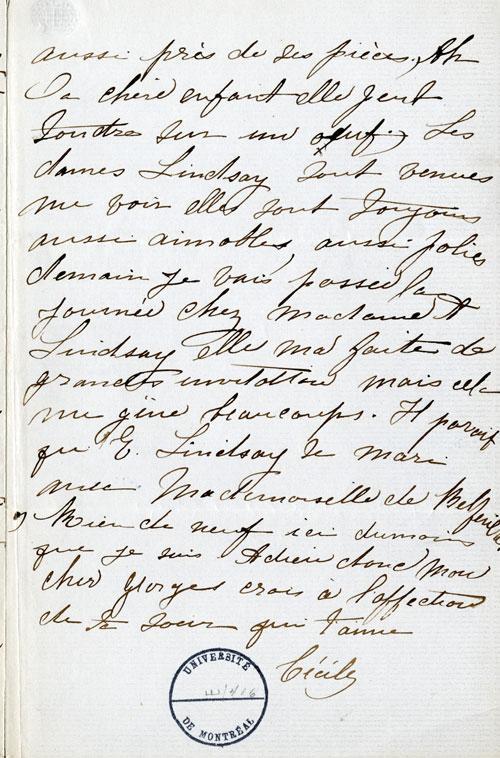 aussi près de ses pièces, Ah
la chère enfant elle peut
tondre sur un oeuf. Les
dames Lindsay sont venues
me voir elles sont toujours
aussi aimables, aussi jolies
demain je vais passer la
journée chez Madame A
Lindsay elle ma faite de
grandes invitation mais cela
me gène beaucoups. Il parait
qu E. Lindsay se marie
avec Mademoiselle de
Rien de neuf ici dumoins
que je sais Adieu donc Mon
cher Georges crois à l'affection
de ta soeur qui t'aime
Cécile
UNIVERSITÉ
DE MONTRÉAL